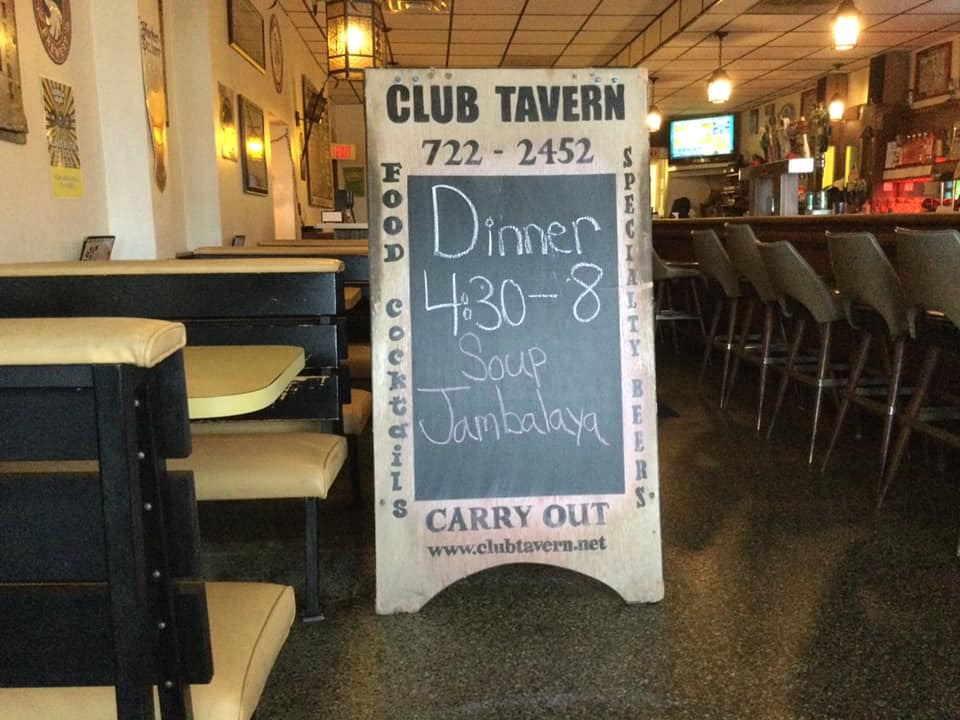 CLUB TAVERN
722 - 2452
FOOD COCKtAilS
SPECIALTY BEERS
Dinner
4:30--8
Soup
Jambalaya
CARRY OUT
www.clubtavern.net